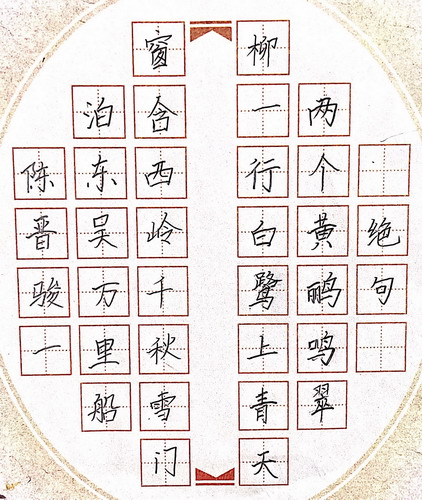 绝句
两个黄鹂鸣翠
柳一行白鹭上青天
窗含西岭千秋雪门
泊东吴万里船
陈晋骏一